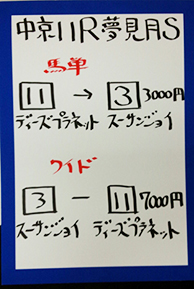 中京11R・夢見月S
馬単
11 → 3 3000円
ディーズプラネット スーサンジョイ
ワイド
3 - 11 7000円
スーサンジョイ ディーズプラネット